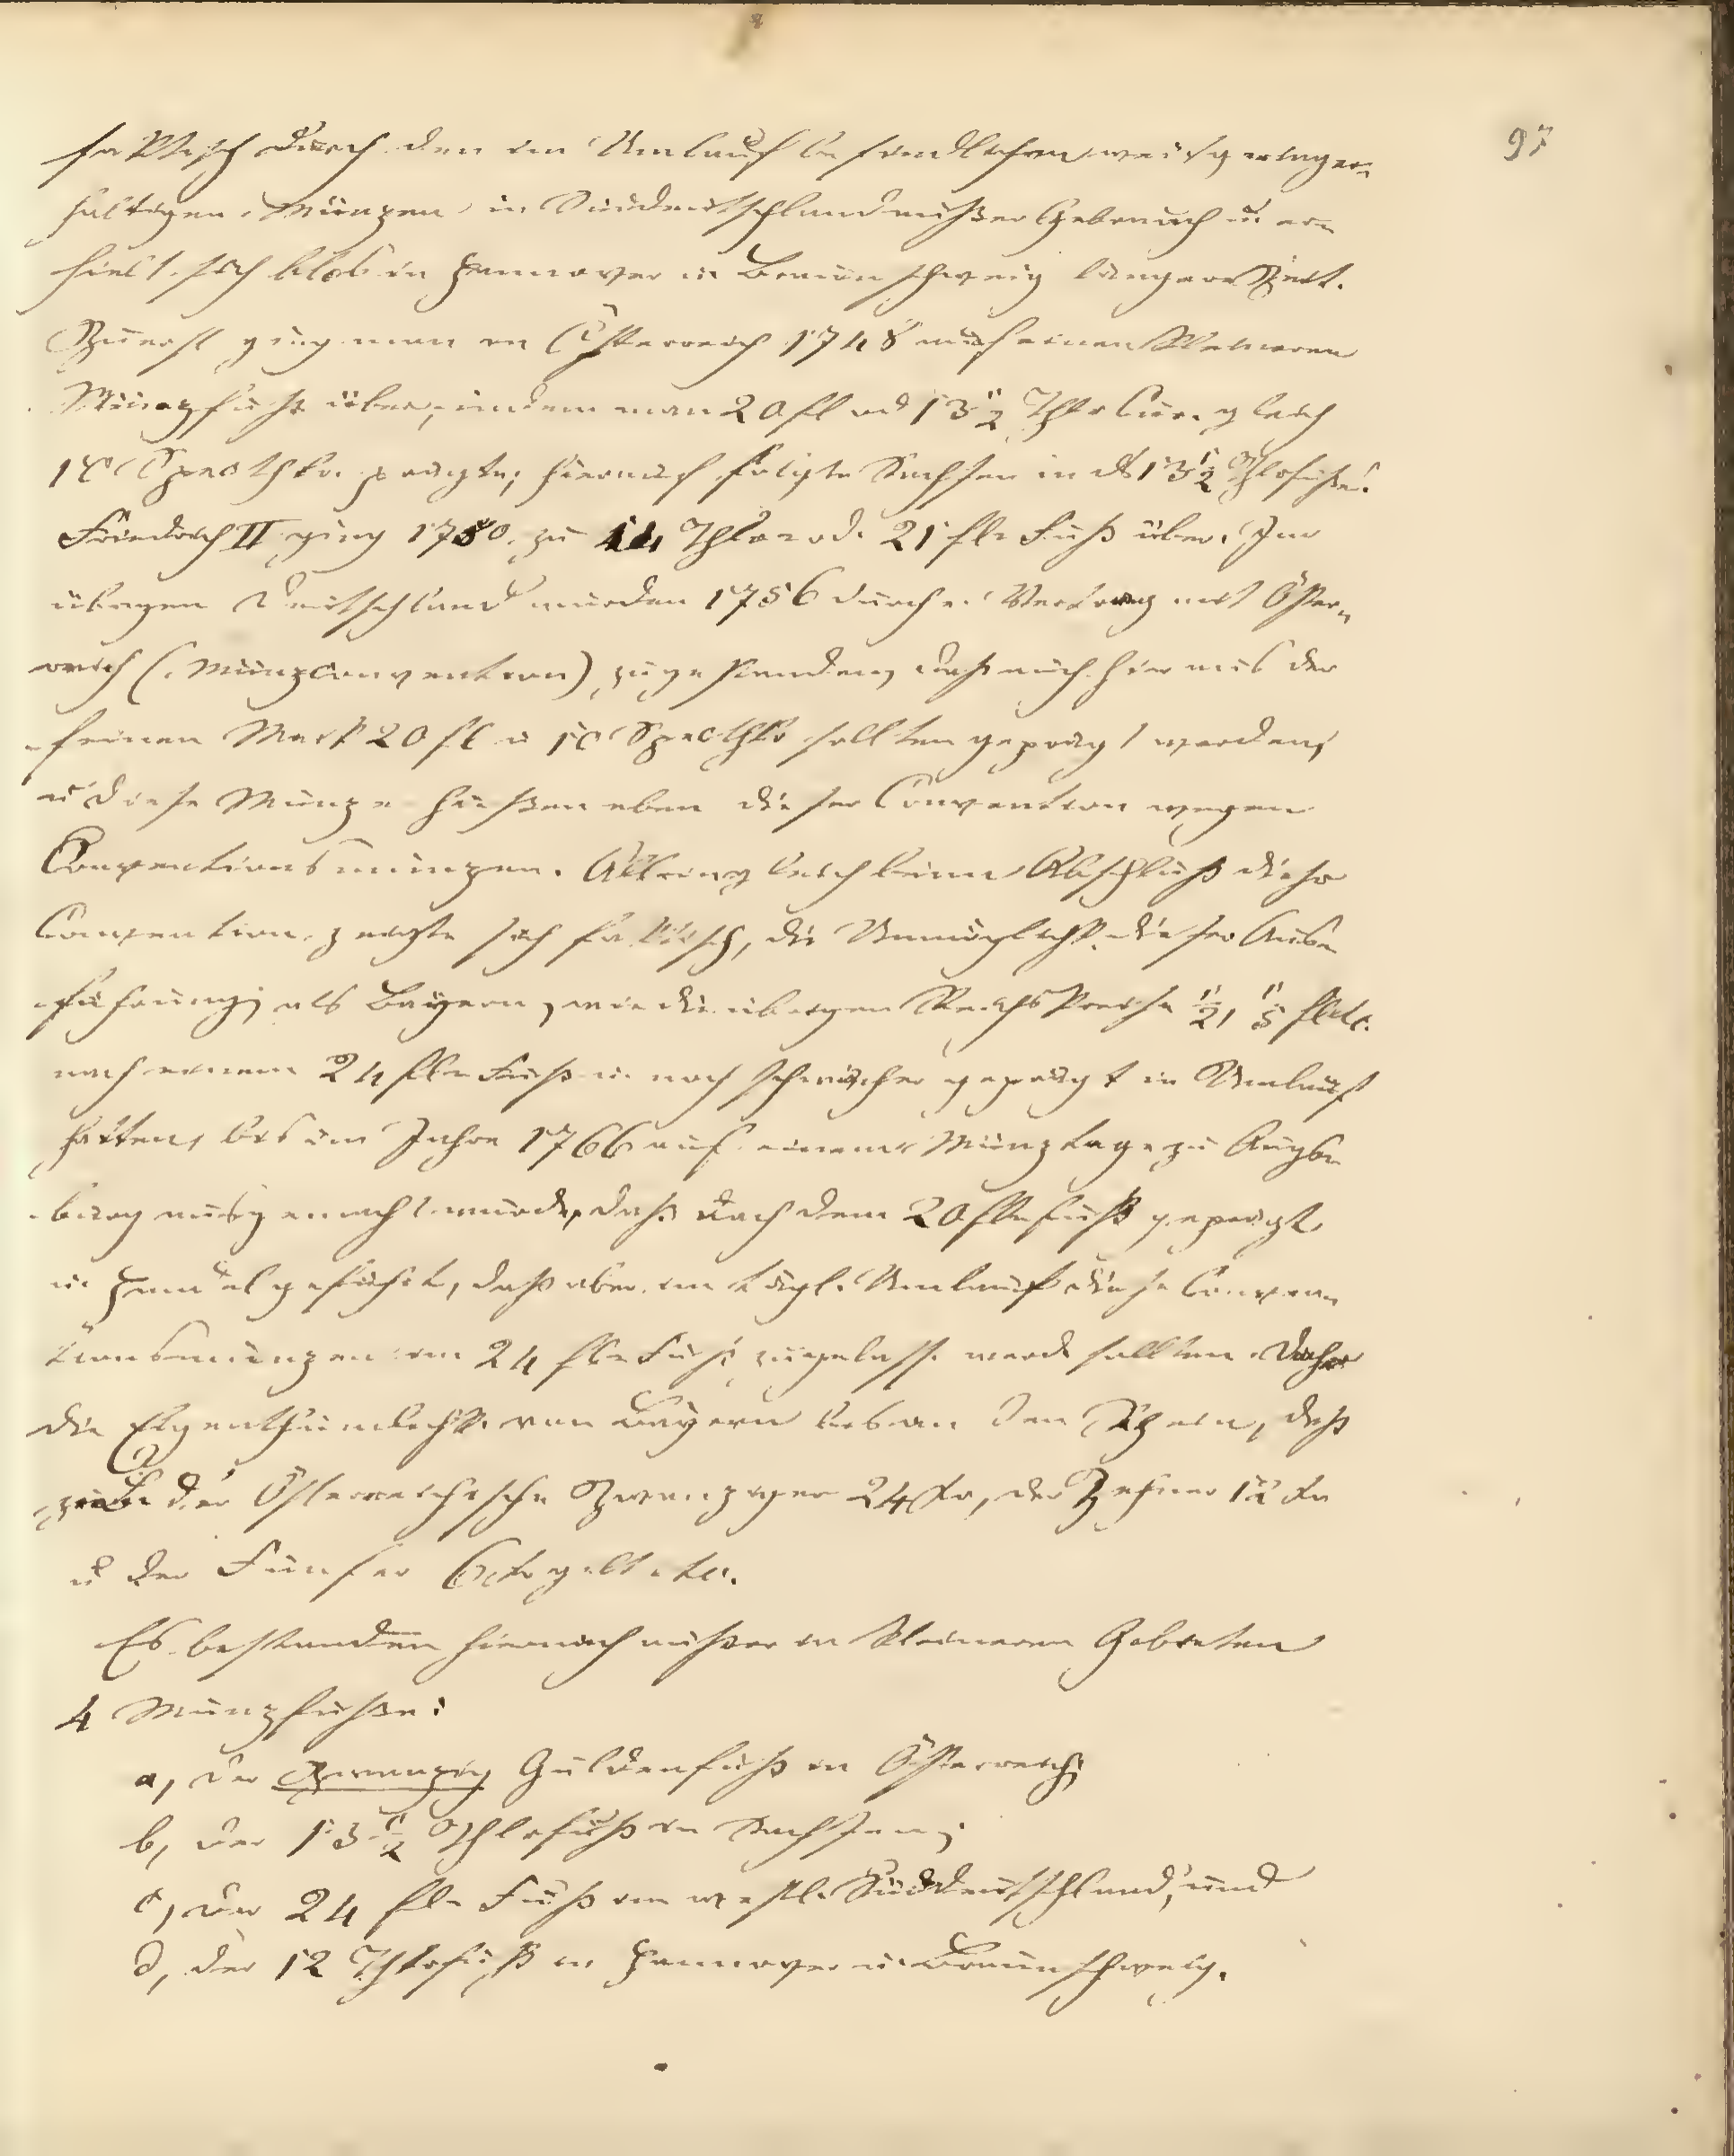 97
faktisch durch den im Umlauf befindlichen weit geringer-
haltigen Münzen in Süddeutschland außer Gebrauch u. er-
hielt sich blos in Hannover u. Braunschweig längere Zeit.
Zuerst ging man in Österreich 1748 auf einen kleineren
Münzfuß über, indem man 20 fl od 13 1/2 Thlr Cur. gleich
10 Specthlr. prägte; hierauf folgte Sachsen in d 13 1/2 Thlrfuße.
Friedrich II ging 1750 zu 14 Thlr od. 21 flr Fuß über. Im
übrigen Deutschland wurden 1756 durch e. Vertrag mit Öster-
reich (Münzconvention) zugestanden, daß auch hier aus der
feinen Mark 20 fl u 10 Specthlr sollten geprägt werden,
u diese Münze hießen eben dieser Convention wegen
Conventionsmünzen. Allein gleich beim Abschluß dieser
Convention zeigte sich faktisch, die Unmöglichk. dieser Aus-
führung, als Bayern, wie die übrigen Reichskreise 1/2, 1/5 fl etc.
nach einem 24 flr Fuß u. noch schwächer geprägt in Umlauf
hatten, bis im Jahre 1766 auf einem Münztage zu Augs-
burg ausgemacht wurde, daß nach dem 20 flr fuß geprägt
u. Handel geführt, daß aber im tägl. Umlauf diese Conven-
tionsmünzen im 24 flr Fuß zugelasse werde sollten. Daher
die Eigenthümlichk. von Bayern bis an den Rhein, daß
z. B. der Österreichische Zwanziger 24 Kr, der Zehner 12 Kr
u der Fünfer 6 Kr gilt etc.
Es bestanden hiernach außer in kleineren Gebieten
4 Münzfuße:
a, der Zwanzig Guldenfuß in Österreich;
b, der 13 1/2 Thlrfuß in Sachsen;
c, der 24 flr Fuß im westl. Süddeutschland, und
d, der 12 Thlrfuß in Hannover u. Braunschweig.